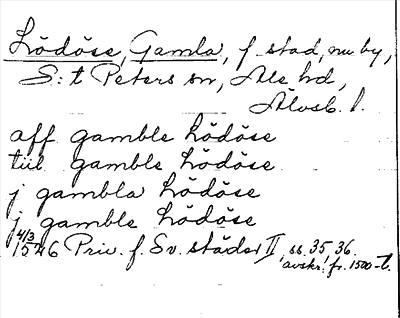 Lödöse, Gamla, f. stad, nu by,
S:t Peters sn, Ale hd,
Älvsb. l.
aff gamble Lödöse
tiil gamble Lödöse
j gambla Lödöse
j gamble Lödöse
4/3 1546 Priv. f. Sv. städer II, ss. 35, 36.
avskr. fr. 1500-t.